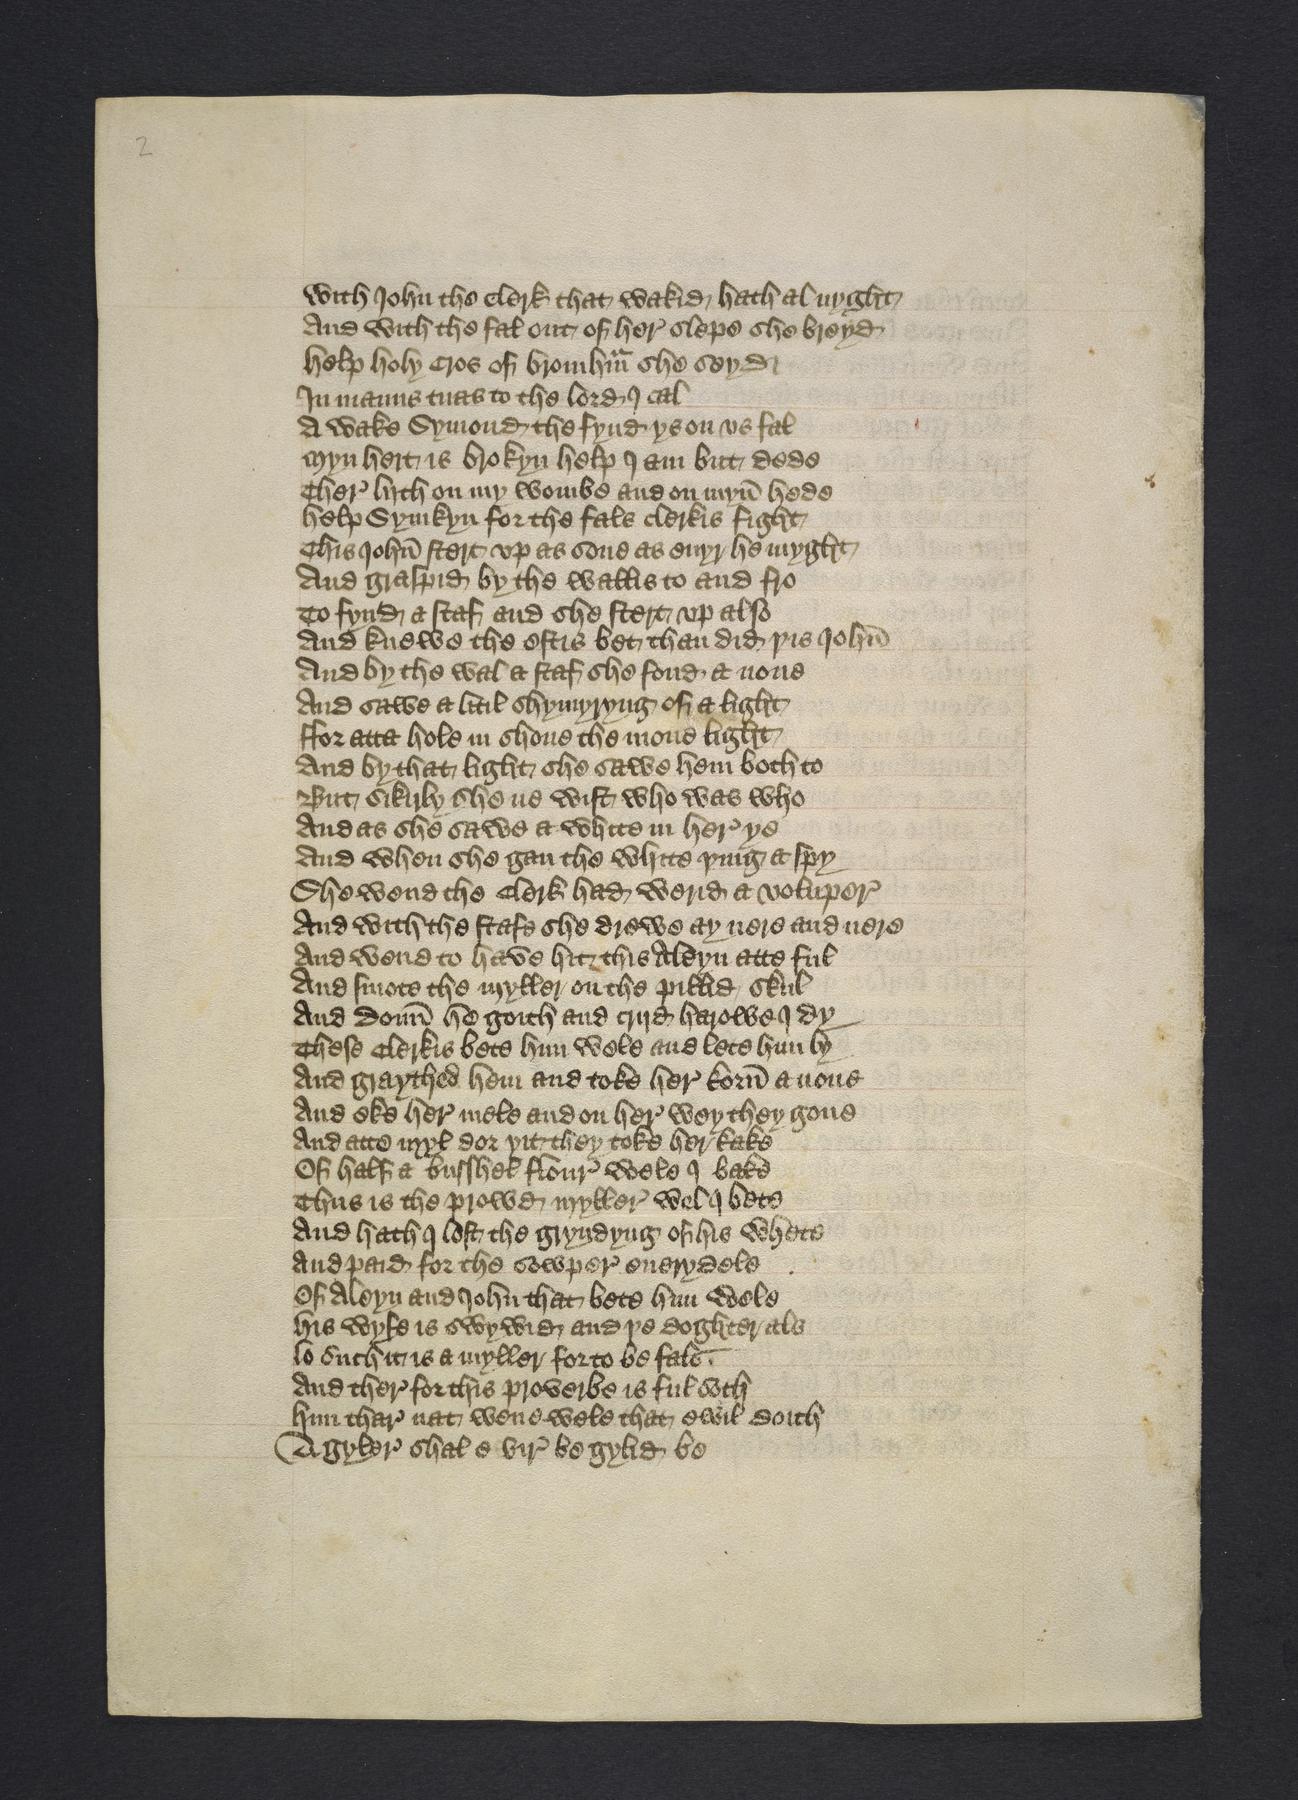 2
With John the Clerk that wakid hath al nyght
And with the fal out of her slepe she breyd
help holy Cros of bromhm̄ she seyd
In manus tuas to the lord I cal
A wake Symond the fynd ys on vs fal
Myn hert is brokyn help I am but dede
Ther lith on my wombe and on myn̄ hede
help Symkyn for the fals clerkis fight
This John̄ stert vp as sone as euyr he myght
And graspid by the wallis to and fro
To fynd a staf and she stert vp also
And knewe the estis bet than did þis John̄
And by the wal a staf she fond a none
And sawe a litil shymyryng of a light
ffor atta hole in shone the mone light
And by that light she sawe hem both to
But sikirly she ne wist who was who
And as she sawe a white in her ye
And when she gan the white þing a spy
She wend the Clerk had werid a voluper
And with the stafe she drewe ay nere and nere
And wend to have hit this Aleyn atte ful
And smote the myller on the pillid skul
And doun̄ he goith and crijd harowe I dy
These Clerkis bete him wele and lete him ly
And graythed hem and toke her korn̄ a none
And eke her mele and on her wey they gone
And atte myl dor yit they toke her kake
Of half a busshel flour wele I bake
Thus is the prowd myller wel I bete
And hath I lost the gryndyng of his whete
And paid for the sowper euerydele
Of Aleyn and John that bete him wele
his wyfe is swywid and þe doghter als
lo such it is a myller for to be fals
And ther for this proverbe is ful soth
him thar nat wene wele that ewil doith
A gyler shal e vir be gylid be